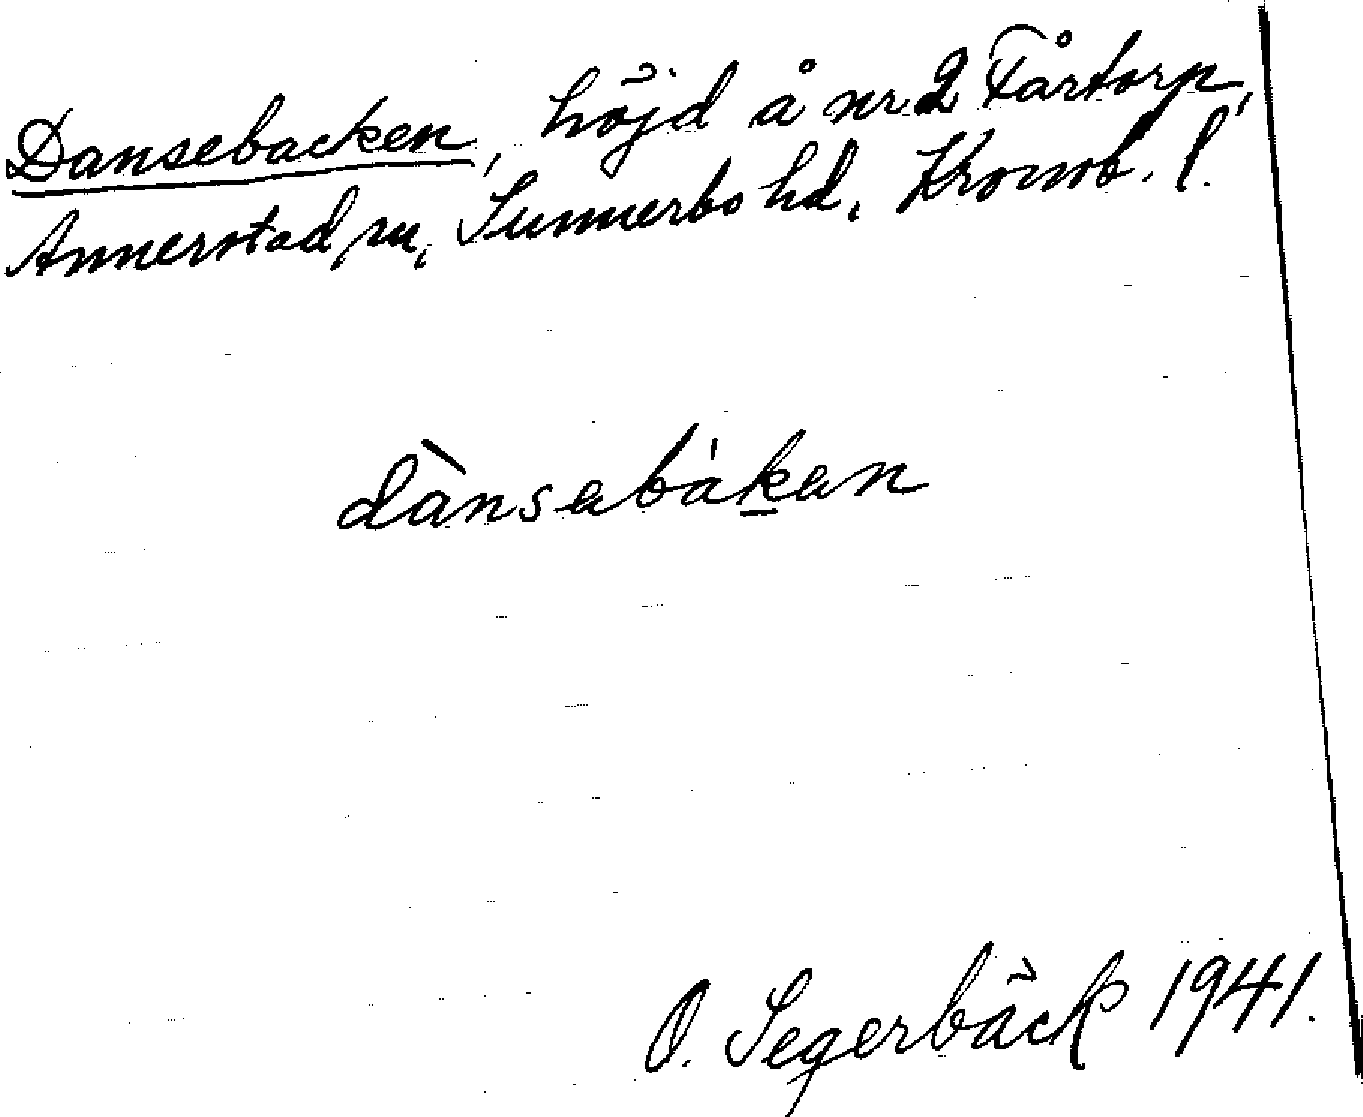 Dansebacken, höjd å nr 2 Fårtorp,
Annerstad sn, Sunnerbo hd, Kronob. l.
dànsabákan
O. Segerbäck 1941.